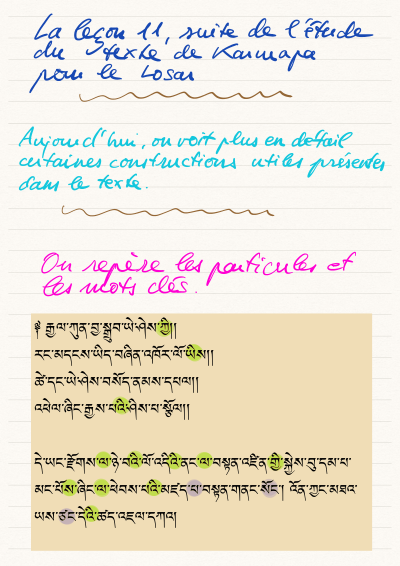 La leçon 11, suite de l'étude
du texte de Karmapa
pour le Losar
Aujourd'hui, on voit plus en détail
certaines constructions utiles présentes
dans le texte.
On repère les particules et
les mots clés.
༈ རྒྱལ་ཀུན་བྱ་སྒྲུབ་ཡེ་ཤེས་ཀྱི།།
རང་མདངས་ཡིད་བཞིན་འཁོར་ལོ་ཡིས།།
ཚེ་དང་ཡེ་ཤེས་བསོད་ནམས་དཔལ།།
འཕེལ་ཞིང་རྒྱས་པའི་ཤིས་པ་སྩོལ།།
དེ་ཡང་རྫོགས་ལ་ཉེ་བའི་ལོ་འདིའི་ནང་ལ་བསྟན་འཛིན་གྱི་སྐྱེས་བུ་དམ་པ་
མང་པོས་ཞིང་ལ་ཕེབས་པའི་མཛད་པ་བསྟན་གནང་སོང་། འོན་ཀྱང་མཐའ་
ཡས་ཅང་དེའི་ཚད་འཇལ་དཀའ།